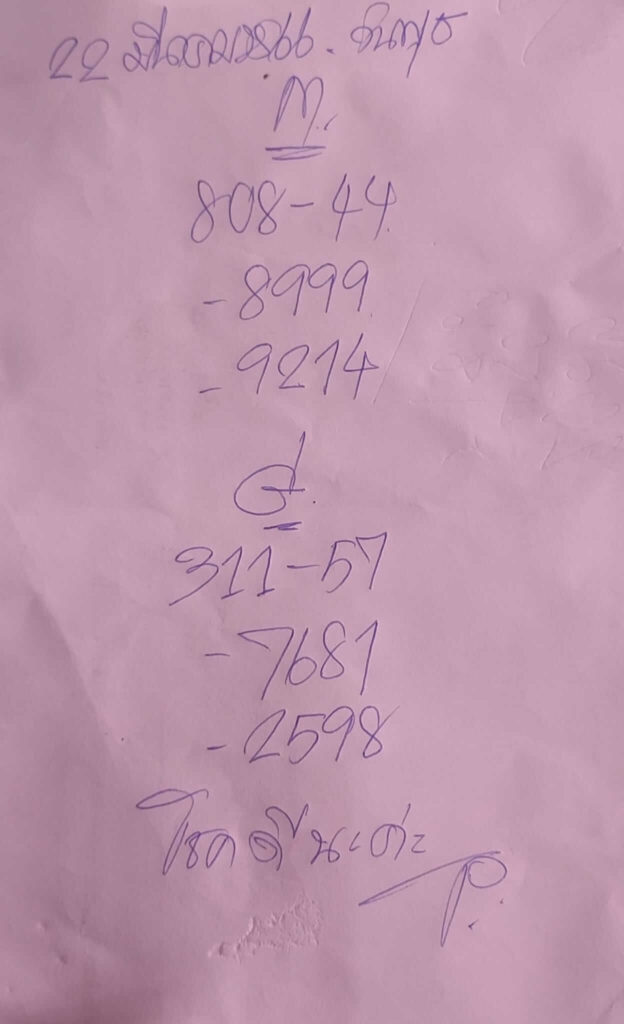 22 มีนาคม 2566. วันพุธ
ท.
808-44
-8999
-9214
ส.
311-57
-7681
-2598
โชคดีนะค่ะ
P.